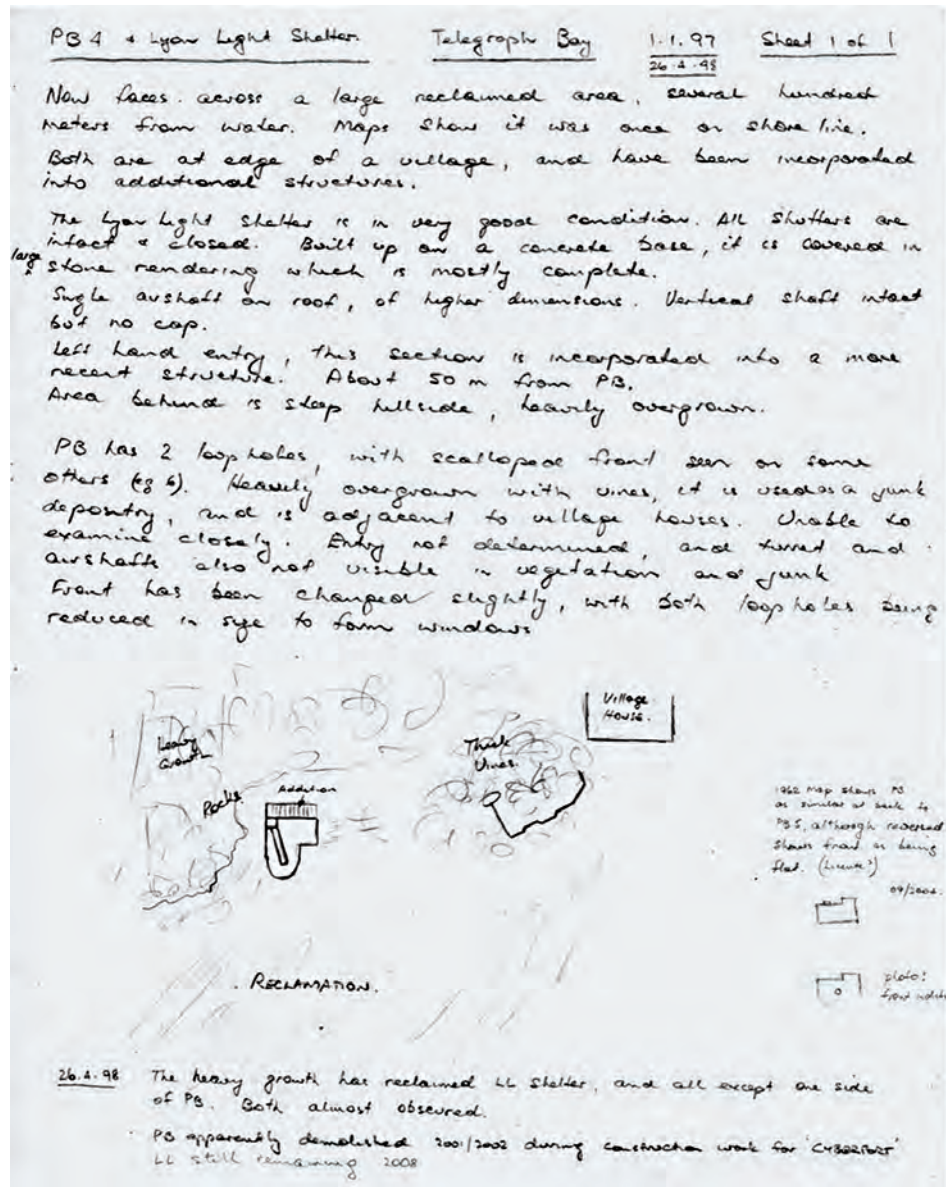 PB 4 & Lyon Light Shelter. Telegraph Bay 1.1.97 Sheet 1 of 1
26.4.98
Now faces across a large reclaimed area, several hundred
meters from water. Maps show it was once on shore line.
Both are at edge of a village, and have been incorporated
into additional structures.
The Lyon Light Shelter is in very good condition. All shutters are
intact & closed. Built up on a concrete base, it is covered in
large stone rendering which is mostly complete.
Single airshaft on roof, of higher dimensions. Vertical shaft intact
but no cap.
Left hand entry, this section is incorporated into a more
recent structure. About 50 m from PB.
Area behind is steep hillside, heavily overgrown.
PB has 2 loopholes, with scalloped front seen on some
others (eg 6). Heavily overgrown with vines, it is used as a junk
depositry, and is adjacent to village houses. Unable to
examine closely. Entry not determined, and turret and
airshafts also not visible in vegetation and junk
Front has been changed slightly, with both loopholes being
reduced in size to form windows
Village
House.
Heavy
Growth
Thick
Vines.
Rocks.
Addition
1962 Map shows PB
as similar at back to
PB5, although reversed
shows front as being
flat.
09/2004.
photo:
front
RECLAMATION.
26.4.98 The heavy growth has reclaimed LL Shelter, and all except one side
of PB. Both almost obscured.
PB apparently demolished 2001/2002 during construction work for 'CYBERPORT'
LL still remaining 2008